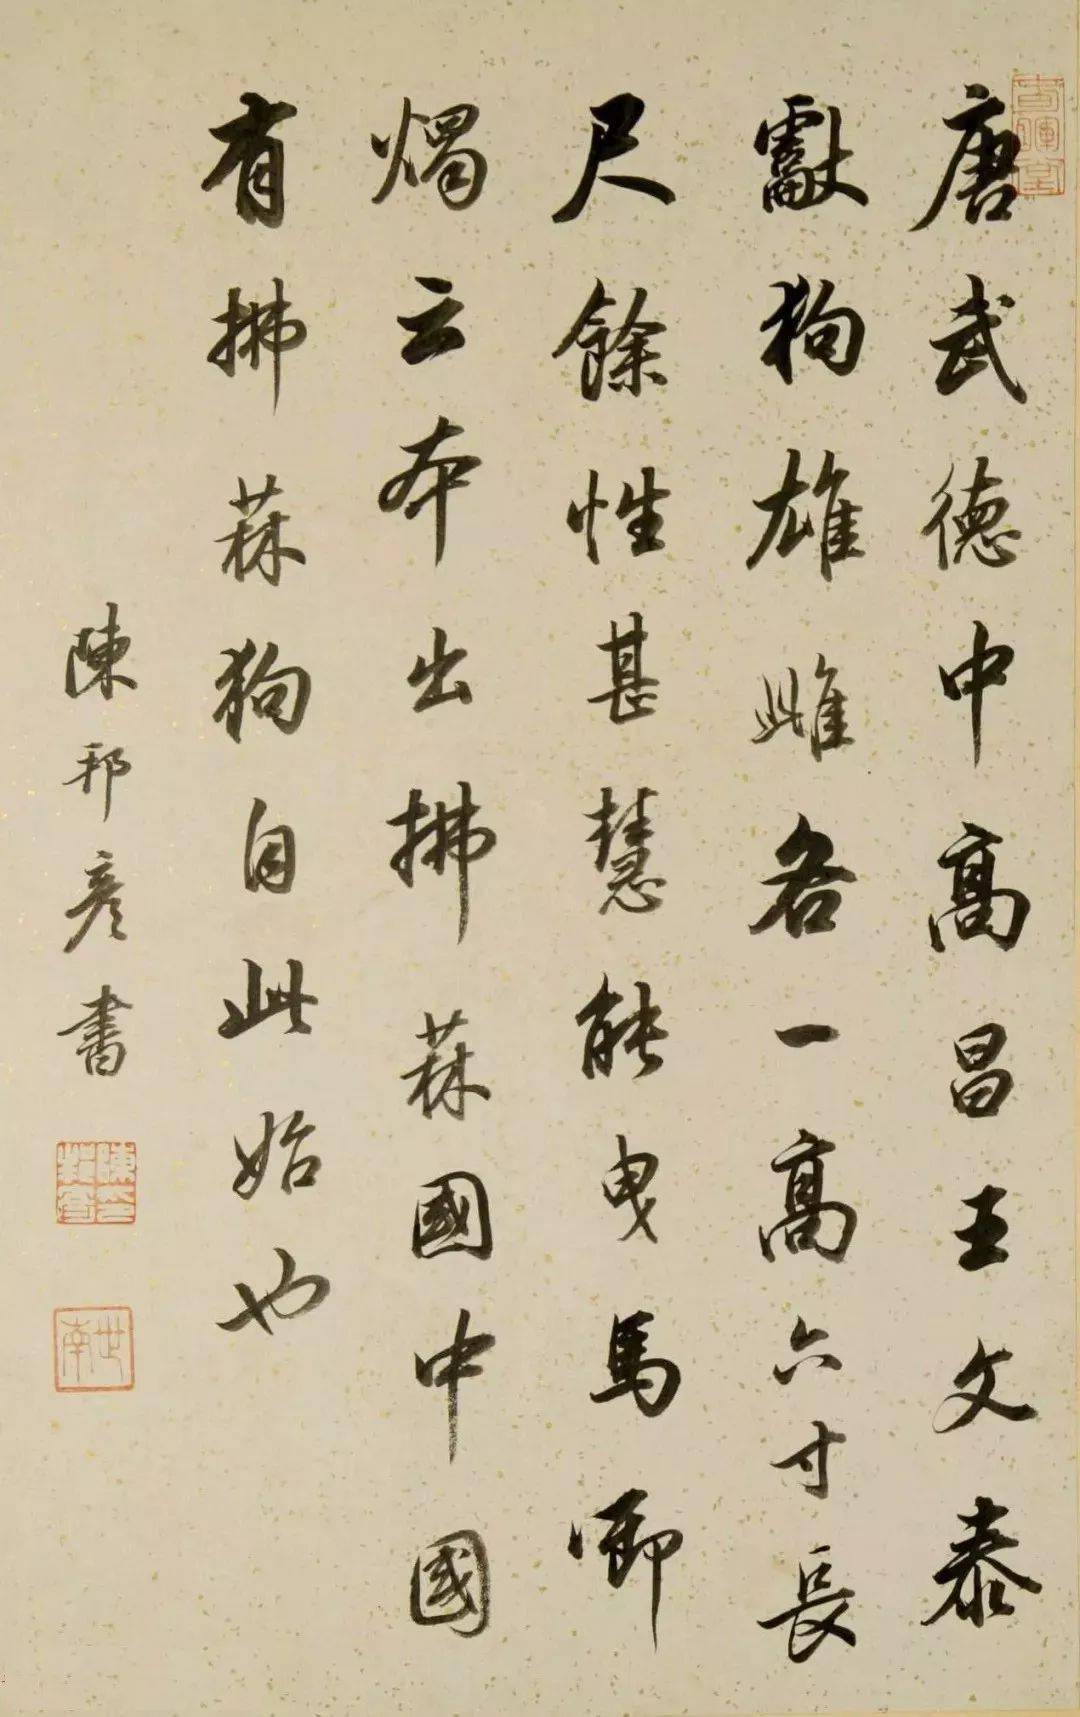 唐武德中高昌王文泰
獻狗雄雌各一高六寸長
尺餘性甚慧能曳馬啣
燭云本出拂菻國中國
有拂菻狗自此始也
陳邦彦書
陳邦彦印
世南